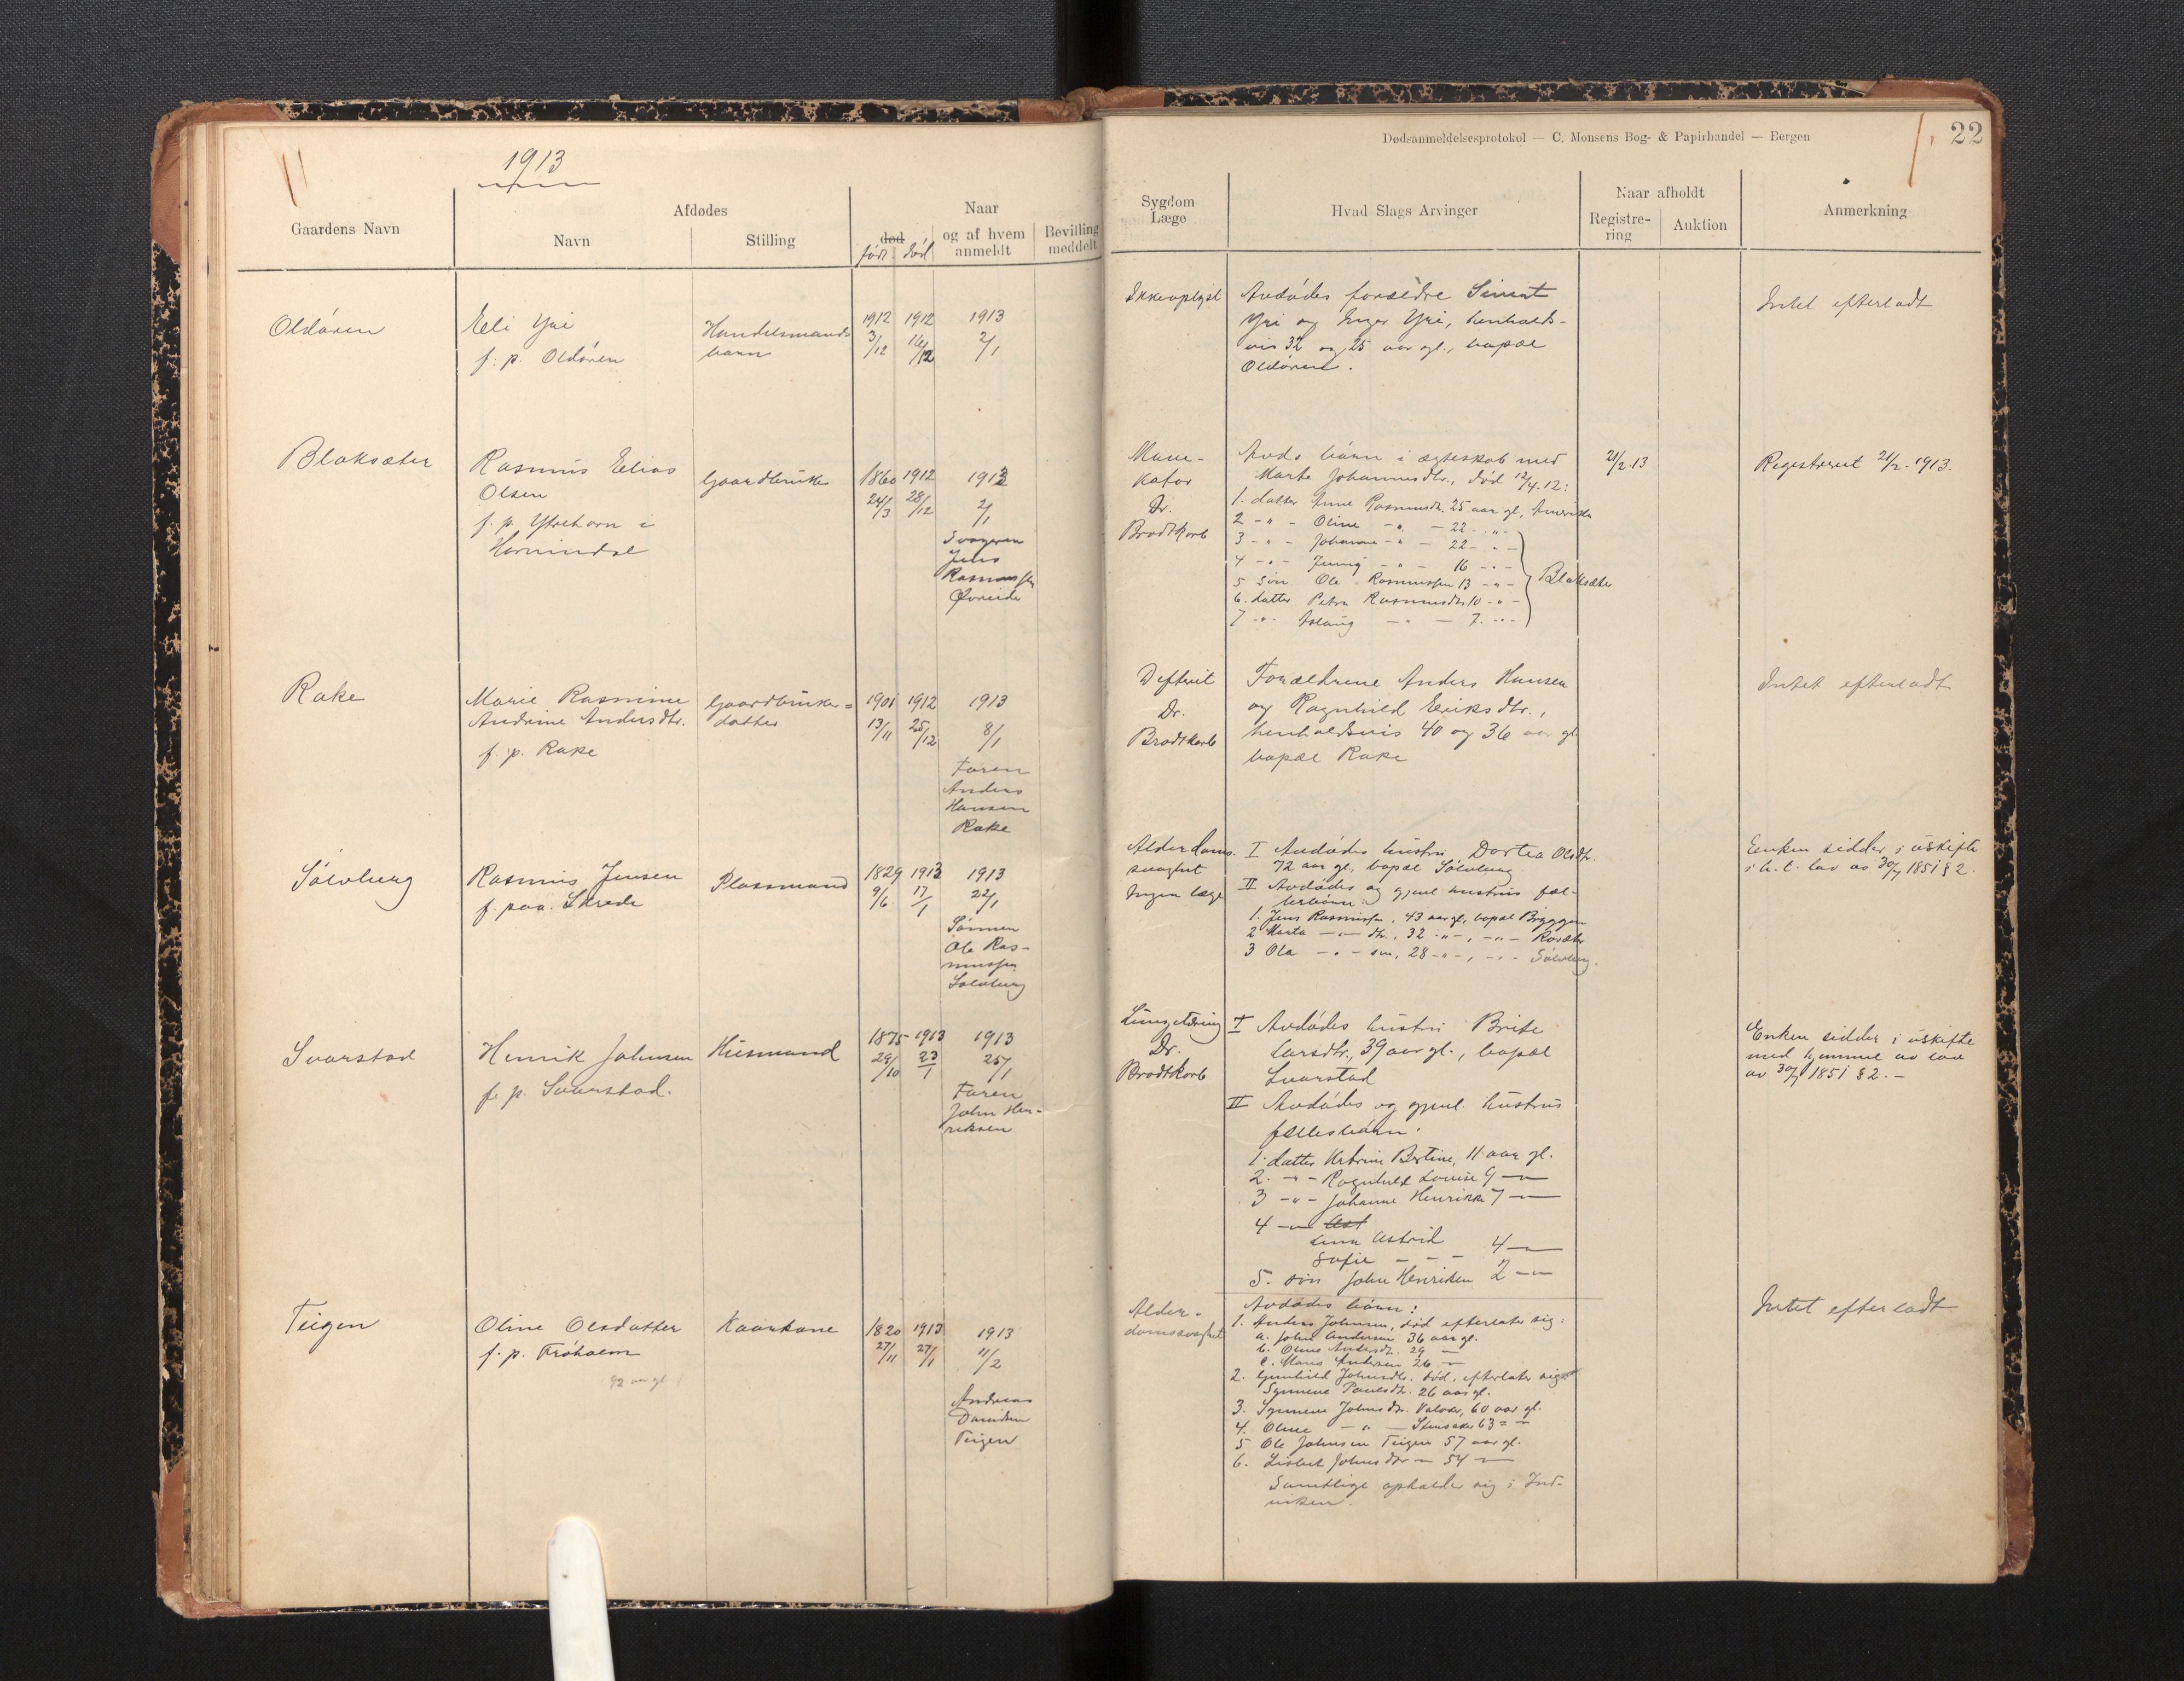 1913
Gaardens Navn
Afdødes
Navn
Stilling
Naar
død
født død
og af hvem
anmeldt
Bevilling
meddelt
Oldøren
Eli Yri
f. p. Oldøren
Handelsmands
barn
1912 1912 1913
3/12 16/12 2/1
Blaksæter
Rasmus Elias
Olsen
f. p. Ytrehorn i
Hornindal
Gaardbruker
1860 1912 1913
24/3 28/12 2/1
Svogeren
Jens
Rasmussen
Øvreide
Rake
Marie Rasmine
Andrine Andersdtr.
f. p. Rake
Gaardbruker=
datter
1901 1912 1913
13/11 25/12 8/1
Faren
Anders
Hansen
Rake
Sølvberg
Rasmus Jensen
f. paa Skrede
Plassmand
1829 1913 1913
9/6 17/1 22/1
Sønnen
Ole Ras-
mussen
Sølvberg
Svarstad
Henrik Johnsen
f. p. Svarstad.
Husmand
1875 1913 1913
29/10 23/1 25/1
Faren
John Hen-
riksen
Teigen
Oline Olsdatter
f. p. Frøholm
92 aar gl.
Kaarkone
1820 1913 1913
27/11 27/1 11/2
Andreas
Davidsen
Teigen
Dødsanmeldelsesprotokol — C. Monsens Bog- & Papirhandel — Bergen
22
Sygdom
Læge
Hvad Slags Arvinger
Naar afholdt
Registre-
ring
Auktion
Anmerkning
Ikke oplyst
Avdødes forældre Simont
Yri og Inger Yri, henholds-
vis 32 og 25 aar gl., bopæl
Oldøren.
Intet efterladt
Mave-
katar
Dr.
Brodtkorb
Avds børn i ægteskab med
Marte Johannesdtr., død 12/4.12:
1. datter Anne Rasmusdtr. 25 aar gl, Amerika
2 -"- Oline -"- 22 -"-
3 -"- Johanne -"- 22 -"-
4 -"- Jenny -"- 16 -"-
5 søn Ole Rasmussen 13 -"-
Blaksæter
6. datter Petra Rasmusdtr 10 -"-
7 -"- Aslaug -"- 7 -"-
21/2.13
Registrert 21/2.1913.
Difterit
Dr.
Brodtkorb
Forældrene Anders Hansen
og Ragnhild Eriksdtr.,
henholdsvis 40 og 36 aar gl
bopæl Rake
Intet efterladt
Alderdoms-
svaghet
Ingen læge
I Avdødes hustru Dortea Olsdtr.
72 aar gl., bopæl Sølvberg
II Avdødes og gjenl. hustrus fæl-
lesbørn:
1. Jens Rasmussen, 43 aar gl, bopæl Bryggen
2 Marta -"- dtr., 32 -"-, -"- Rosæter
3 Ola -"- søn, 28 -"-, -"- Sølvberg.
Enken sidder i uskifte
i h. t. lov av 30/7 1851 § 2.
Lungetæring
Dr.
Brodtkorb
I Avdødes hustru Brite
Larsdtr., 39 aar gl., bopæl
Svarstad
II Avdødes og gjenl. hustrus
fællesbørn:
1. datter Katrine Bertine, 11 aar gl.
2. -"- Ragnhild Lovise 9 —
3 -"- Johanne Henrikke 7 —
4 -"- Ast
Anna Astrid
Sofie - - - 4 —
5. søn John Henriksen 2 -"-
Enken sidder i uskifte
med hjemmel av lov
av 30/7 1851 § 2. -
Alder-
domssvaghet
Avdødes børn:
1. Anders Johnsen, død efterlater sig:
a. John Andersen 36 aar gl.
b. Oline Andersdtr. 29 —
c. Mons Andersen 26 —
2. Gunhild Johnsdtr. død, efterlater sig
Synneve Paulsdtr. 26 aar gl.
3. Synneve Johnsdtr. Valaker, 60 aar gl.
4. Oline -"- Stensaker 63 = —
5 Ole Johnsen Teigen 57 aar gl.
6. Lisbet Johnsdtr — 54 —
Samtlige opholder sig i Ind-
viken.
Intet efterladt